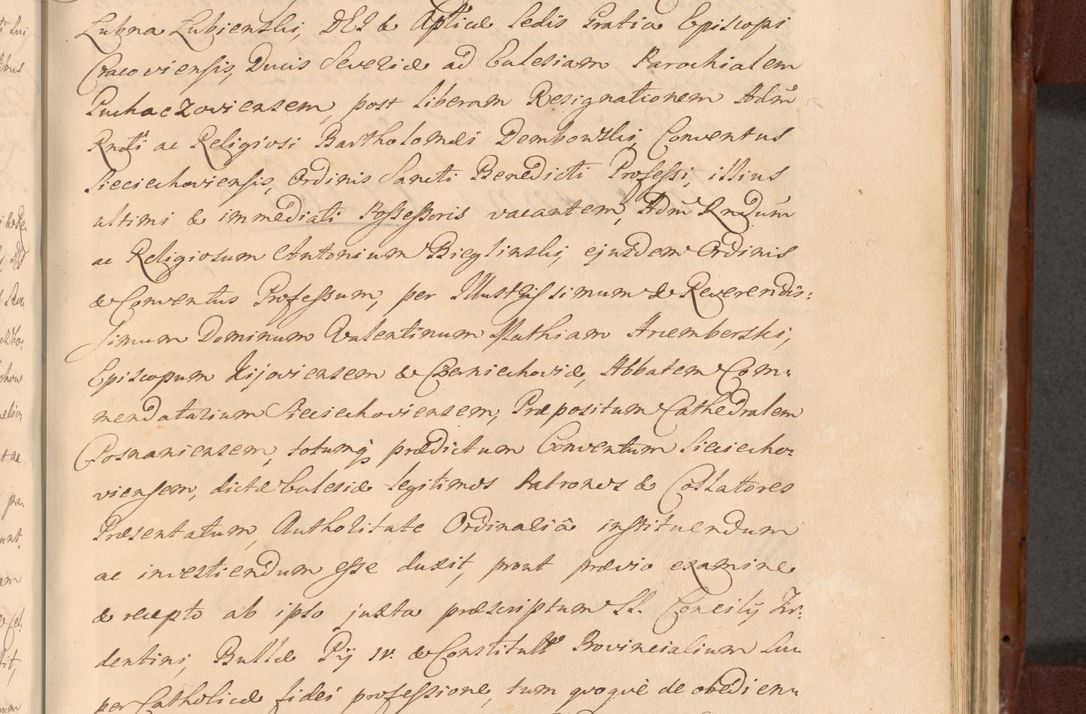 Lubna Lubienski, DEI & Aplicæ Sedis Gratia Episcopi
Cracoviensis, Ducis Severiæ ad Ecclesiam Parochialem
Puchaczoviensem, post liberam Resignationem Adm
Rndi ac Religiosi Bartholomæi Dembowski, Conventus
Sieciechoviensis, Ordinis Sancti Benedicti Professi, illius
ultimi & immediati Possessoris vacantem, Adm Rndum
ac Religiosum Antonium Bieglinski, ejusdem Ordinis
& Conventus Professum, per Illustrissimum & Reverendis:
simum Dominum Valentinum Mathiam Aremberski,
Episcopum Kijoviensem & Czerniechoviæ, Abbatem Com-
mendatarium Sieciechoviensem, Præpositum Cathedralem
Posnaniensem, totumq prædictum Conventum Sieciecho
viensem, dictæ Ecclesiæ legitimos Patronos & Collatores
Præsentatum, Authoritate Ordinaria instituendum
ac investiendum esse duxit, prout prævio examine
& recepto ab ipso juxta præscriptum SS. Concilij Tri:
dentini, Bullæ Pij IV. & Constitutt Provincialium su
per Catholicæ fidei professione, tum quoquè de obedien-